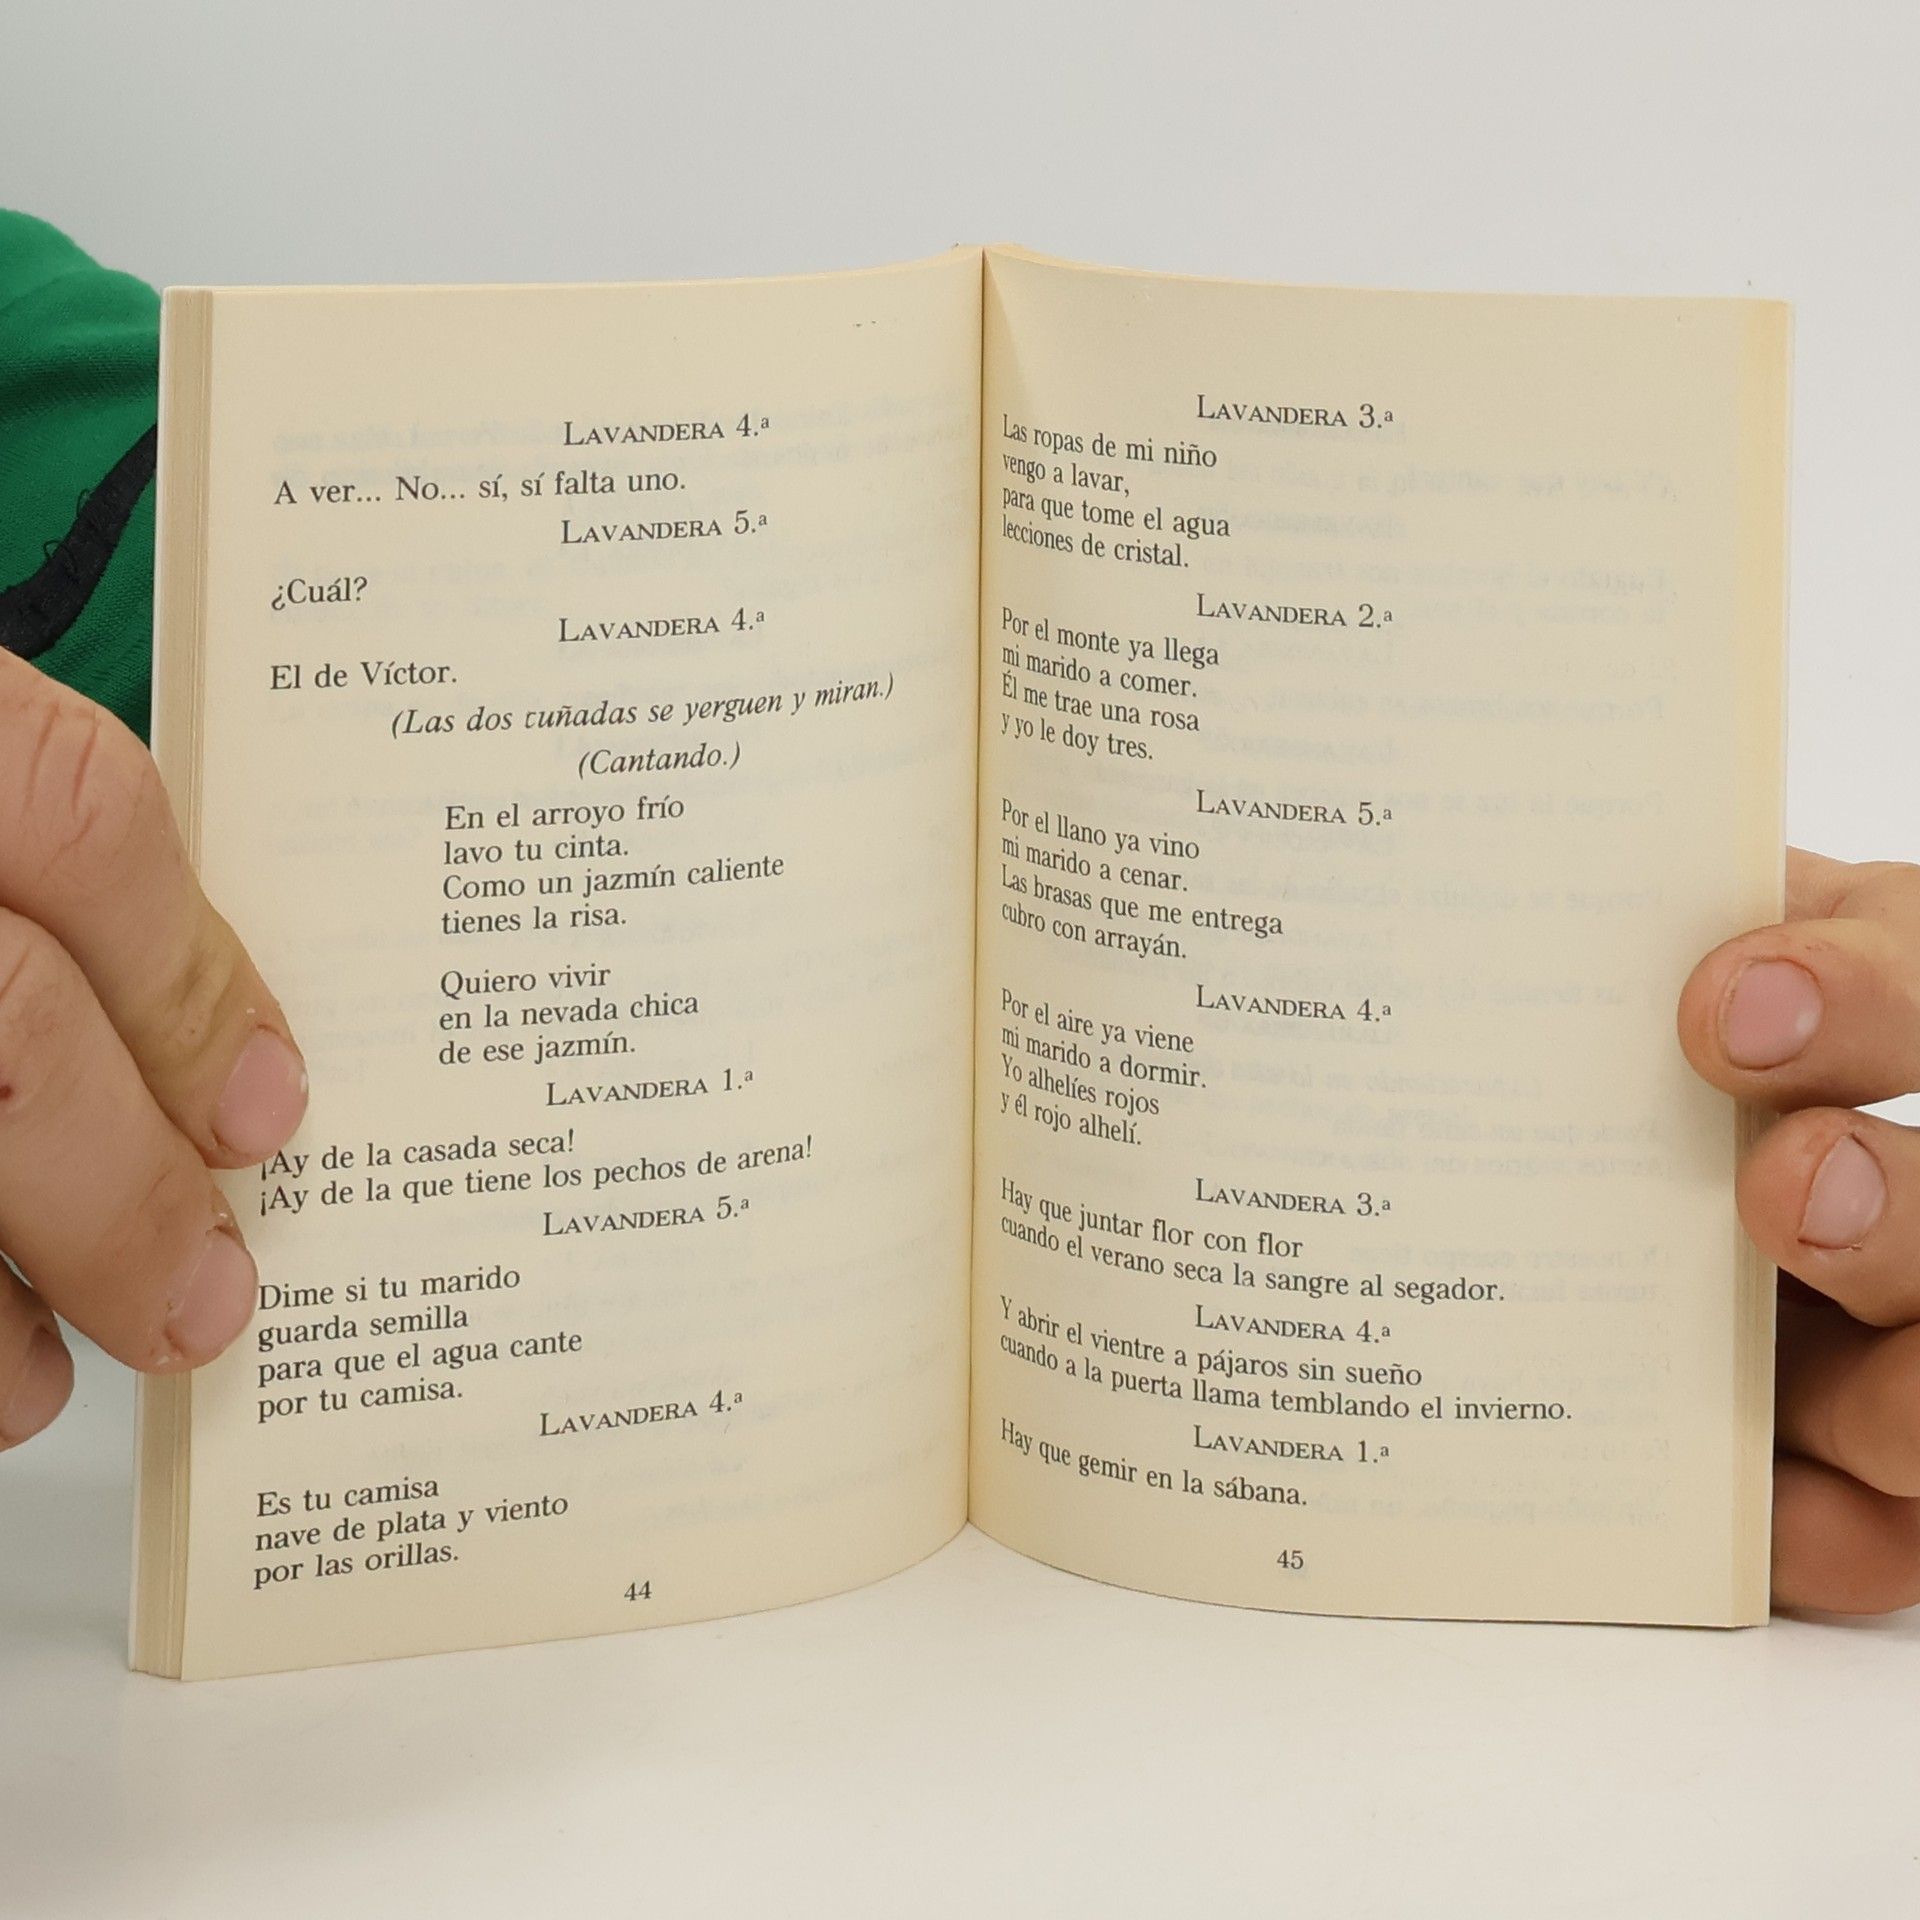 LAVANDERA 4.ª
A ver... No... sí, sí falta uno.
LAVANDERA 5.ª
¿Cuál?
LAVANDERA 4.ª
El de Víctor.
(Las dos cuñadas se yerguen y miran.)
(Cantando.)
En el arroyo frío
lavo tu cinta.
Como un jazmín caliente
tienes la risa.
Quiero vivir
en la nevada chica
de ese jazmín.
LAVANDERA 1.ª
¡Ay de la casada seca!
¡Ay de la que tiene los pechos de arena!
LAVANDERA 5.ª
Dime si tu marido
guarda semilla
para que el agua cante
por tu camisa.
LAVANDERA 4.ª
Es tu camisa
nave de plata y viento
por las orillas.
44
LAVANDERA 3.ª
Las ropas de mi niño
vengo a lavar,
para que tome el agua
lecciones de cristal.
LAVANDERA 2.ª
Por el monte ya llega
mi marido a comer.
Él me trae una rosa
y yo le doy tres.
LAVANDERA 5.ª
Por el llano ya vino
mi marido a cenar.
Las brasas que me entrega
cubro con arrayán.
LAVANDERA 4.ª
Por el aire ya viene
mi marido a dormir.
Yo alhelíes rojos
y él rojo alhelí.
LAVANDERA 3.ª
Hay que juntar flor con flor
cuando el verano seca la sangre al segador.
LAVANDERA 4.ª
Y abrir el vientre a pájaros sin sueño
cuando a la puerta llama temblando el invierno.
LAVANDERA 1.ª
Hay que gemir en la sábana.
45